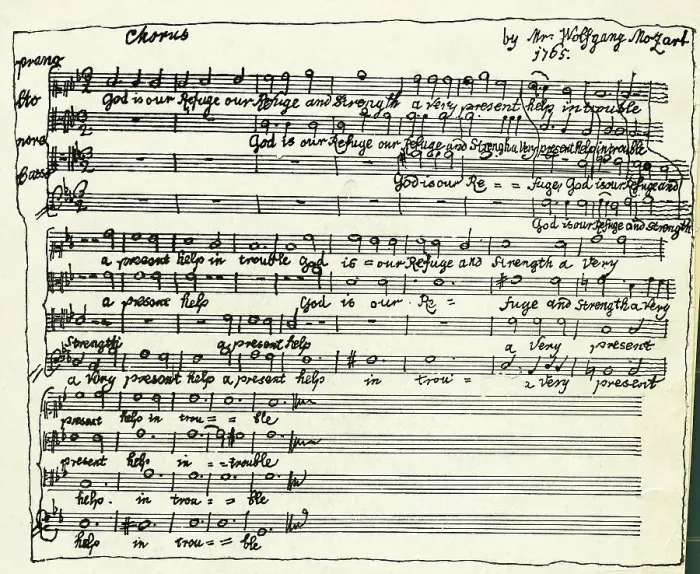 Chorus
by Mr. Wolfgang Mozart
1765.
prano
lto
God is our Refuge our Refuge and Strength a very present help in trouble
God is our Refuge our Refuge and Strength a Very present help in trouble
nore
God is our Re = = fuge, God is our Refuge and
Basso
God is our Refuge and strength
a present help in trouble God is = our Refuge and Strength a Very
a present help God is our Re = fuge and Strength a Very
Strength a present help a Very present
a Very present help a present help in trou = a Very present
present help in trou = = ble
present help in = = trouble
help. in trou = = ble
help in trou = = ble